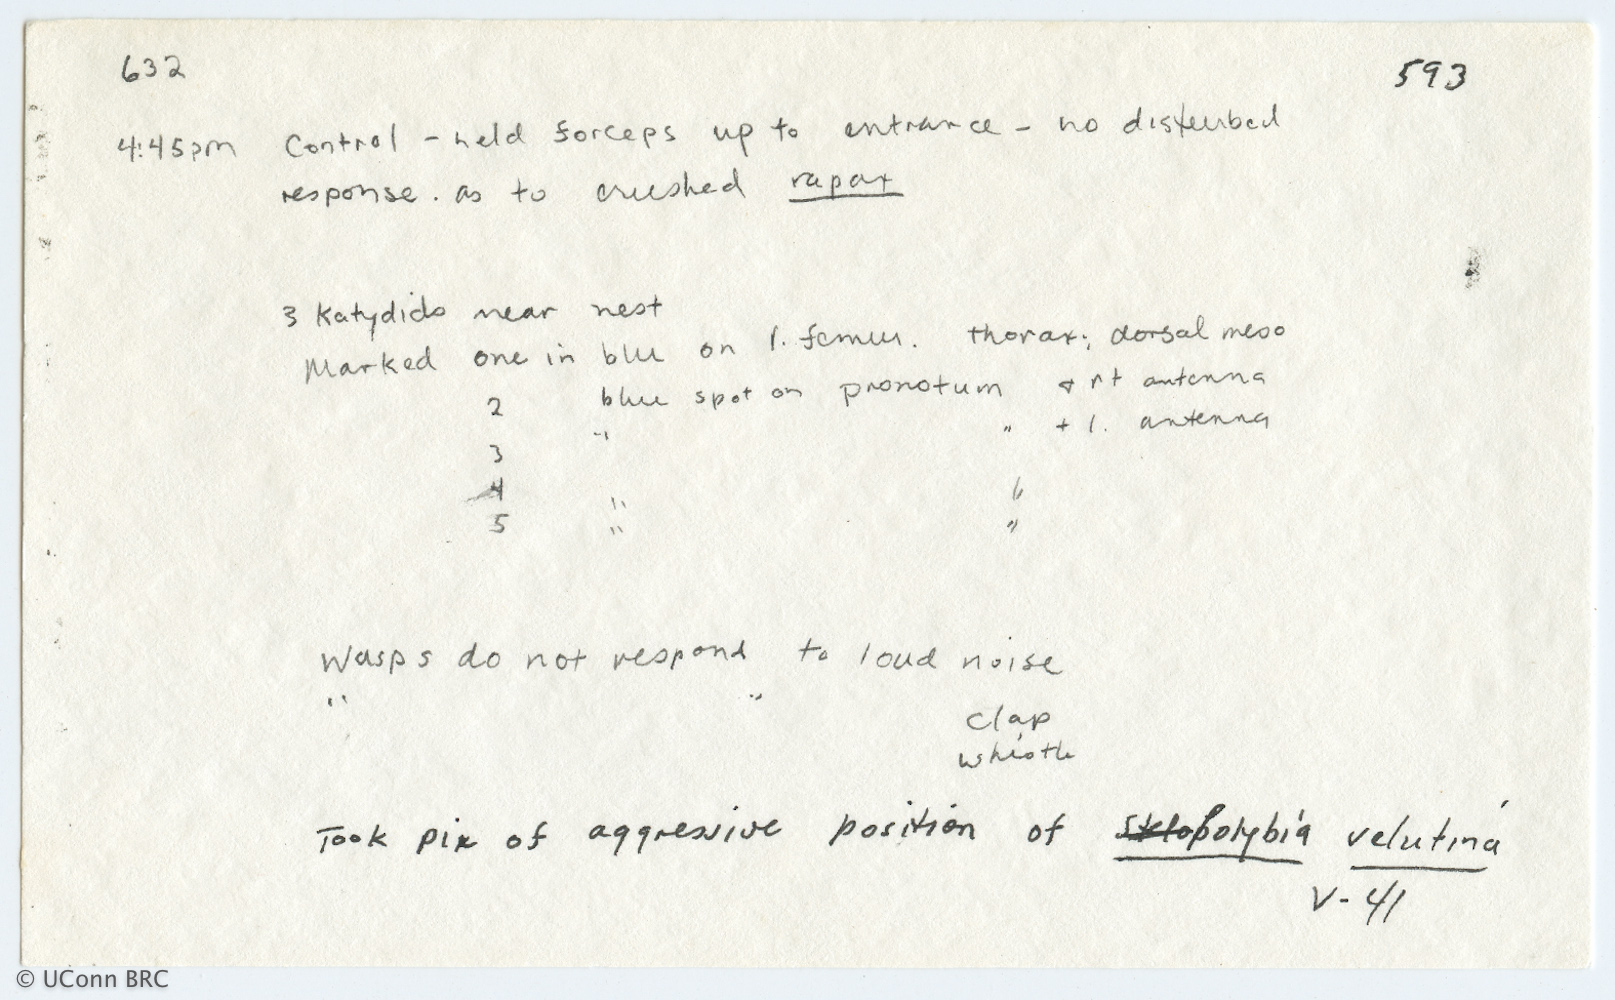 632 593
4:45pm Control - held forceps up to entrance - no disturbed
response. as to crushed rapax
3 Katydids near nest
Marked one in blue on l. femur. thorax; dorsal meso
2 blue spot on pronotum & rt antenna
3 " " + l. antenna
4 " "
5 " "
Wasps do not respond to loud noise
" "
clap
whistle
Took pix of aggressive position of Stelopolybia velutina
V-41
© UConn BRC